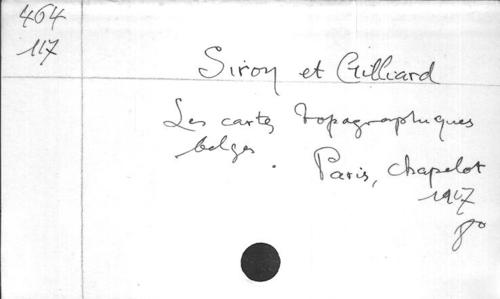 464
117
Siron et Gilliard
Les cartes topographiques
belges. Paris, Chapelot
8°